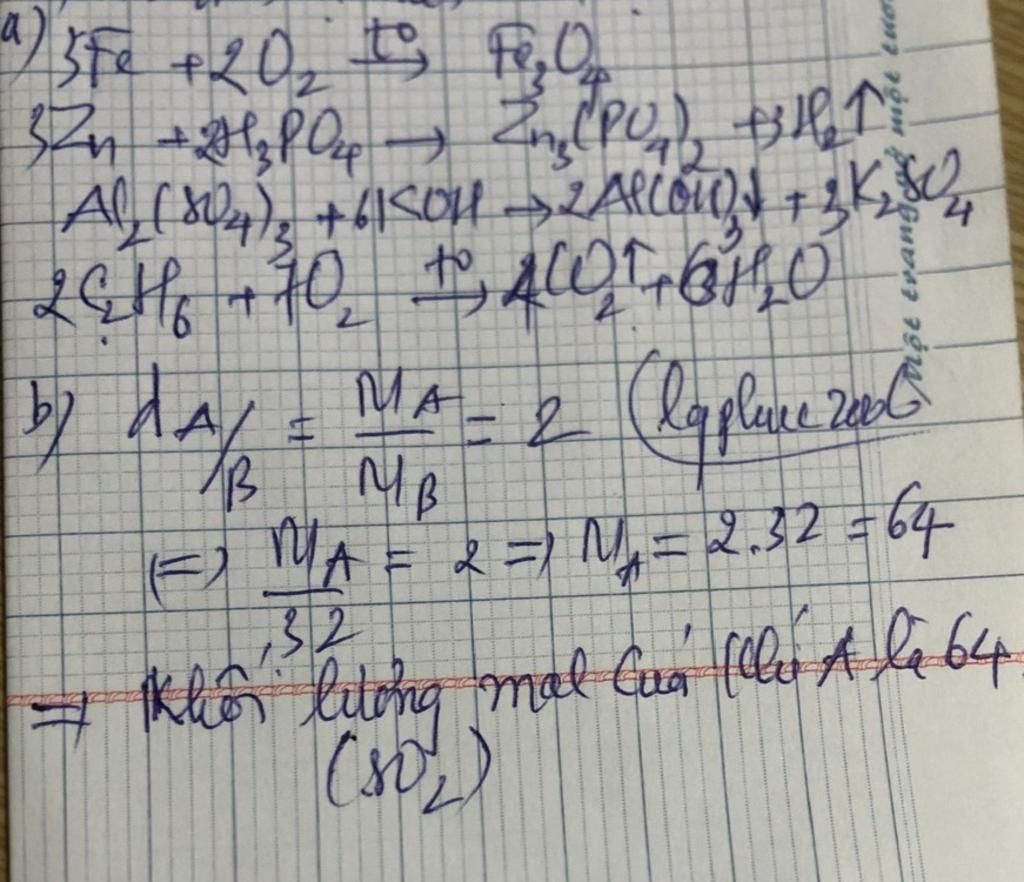 a) 3Fe + 2O₂ t° → Fe₃O₄
3Zn + 2H₃PO₄ → Zn₃(PO₄)₂ + 3H₂↑
Al₂(SO₄)₃ + 6KOH → 2Al(OH)₃↓ + 3K₂SO₄
2C₂H₆ + 7O₂ t° → 4CO₂↑ + 6H₂O
b) d A/B = M_A / M_B = 2
(=) M_A / 32 = 2 => M_A = 2.32 = 64
=> Khối lượng mol của khí A là 64
(SO₂)